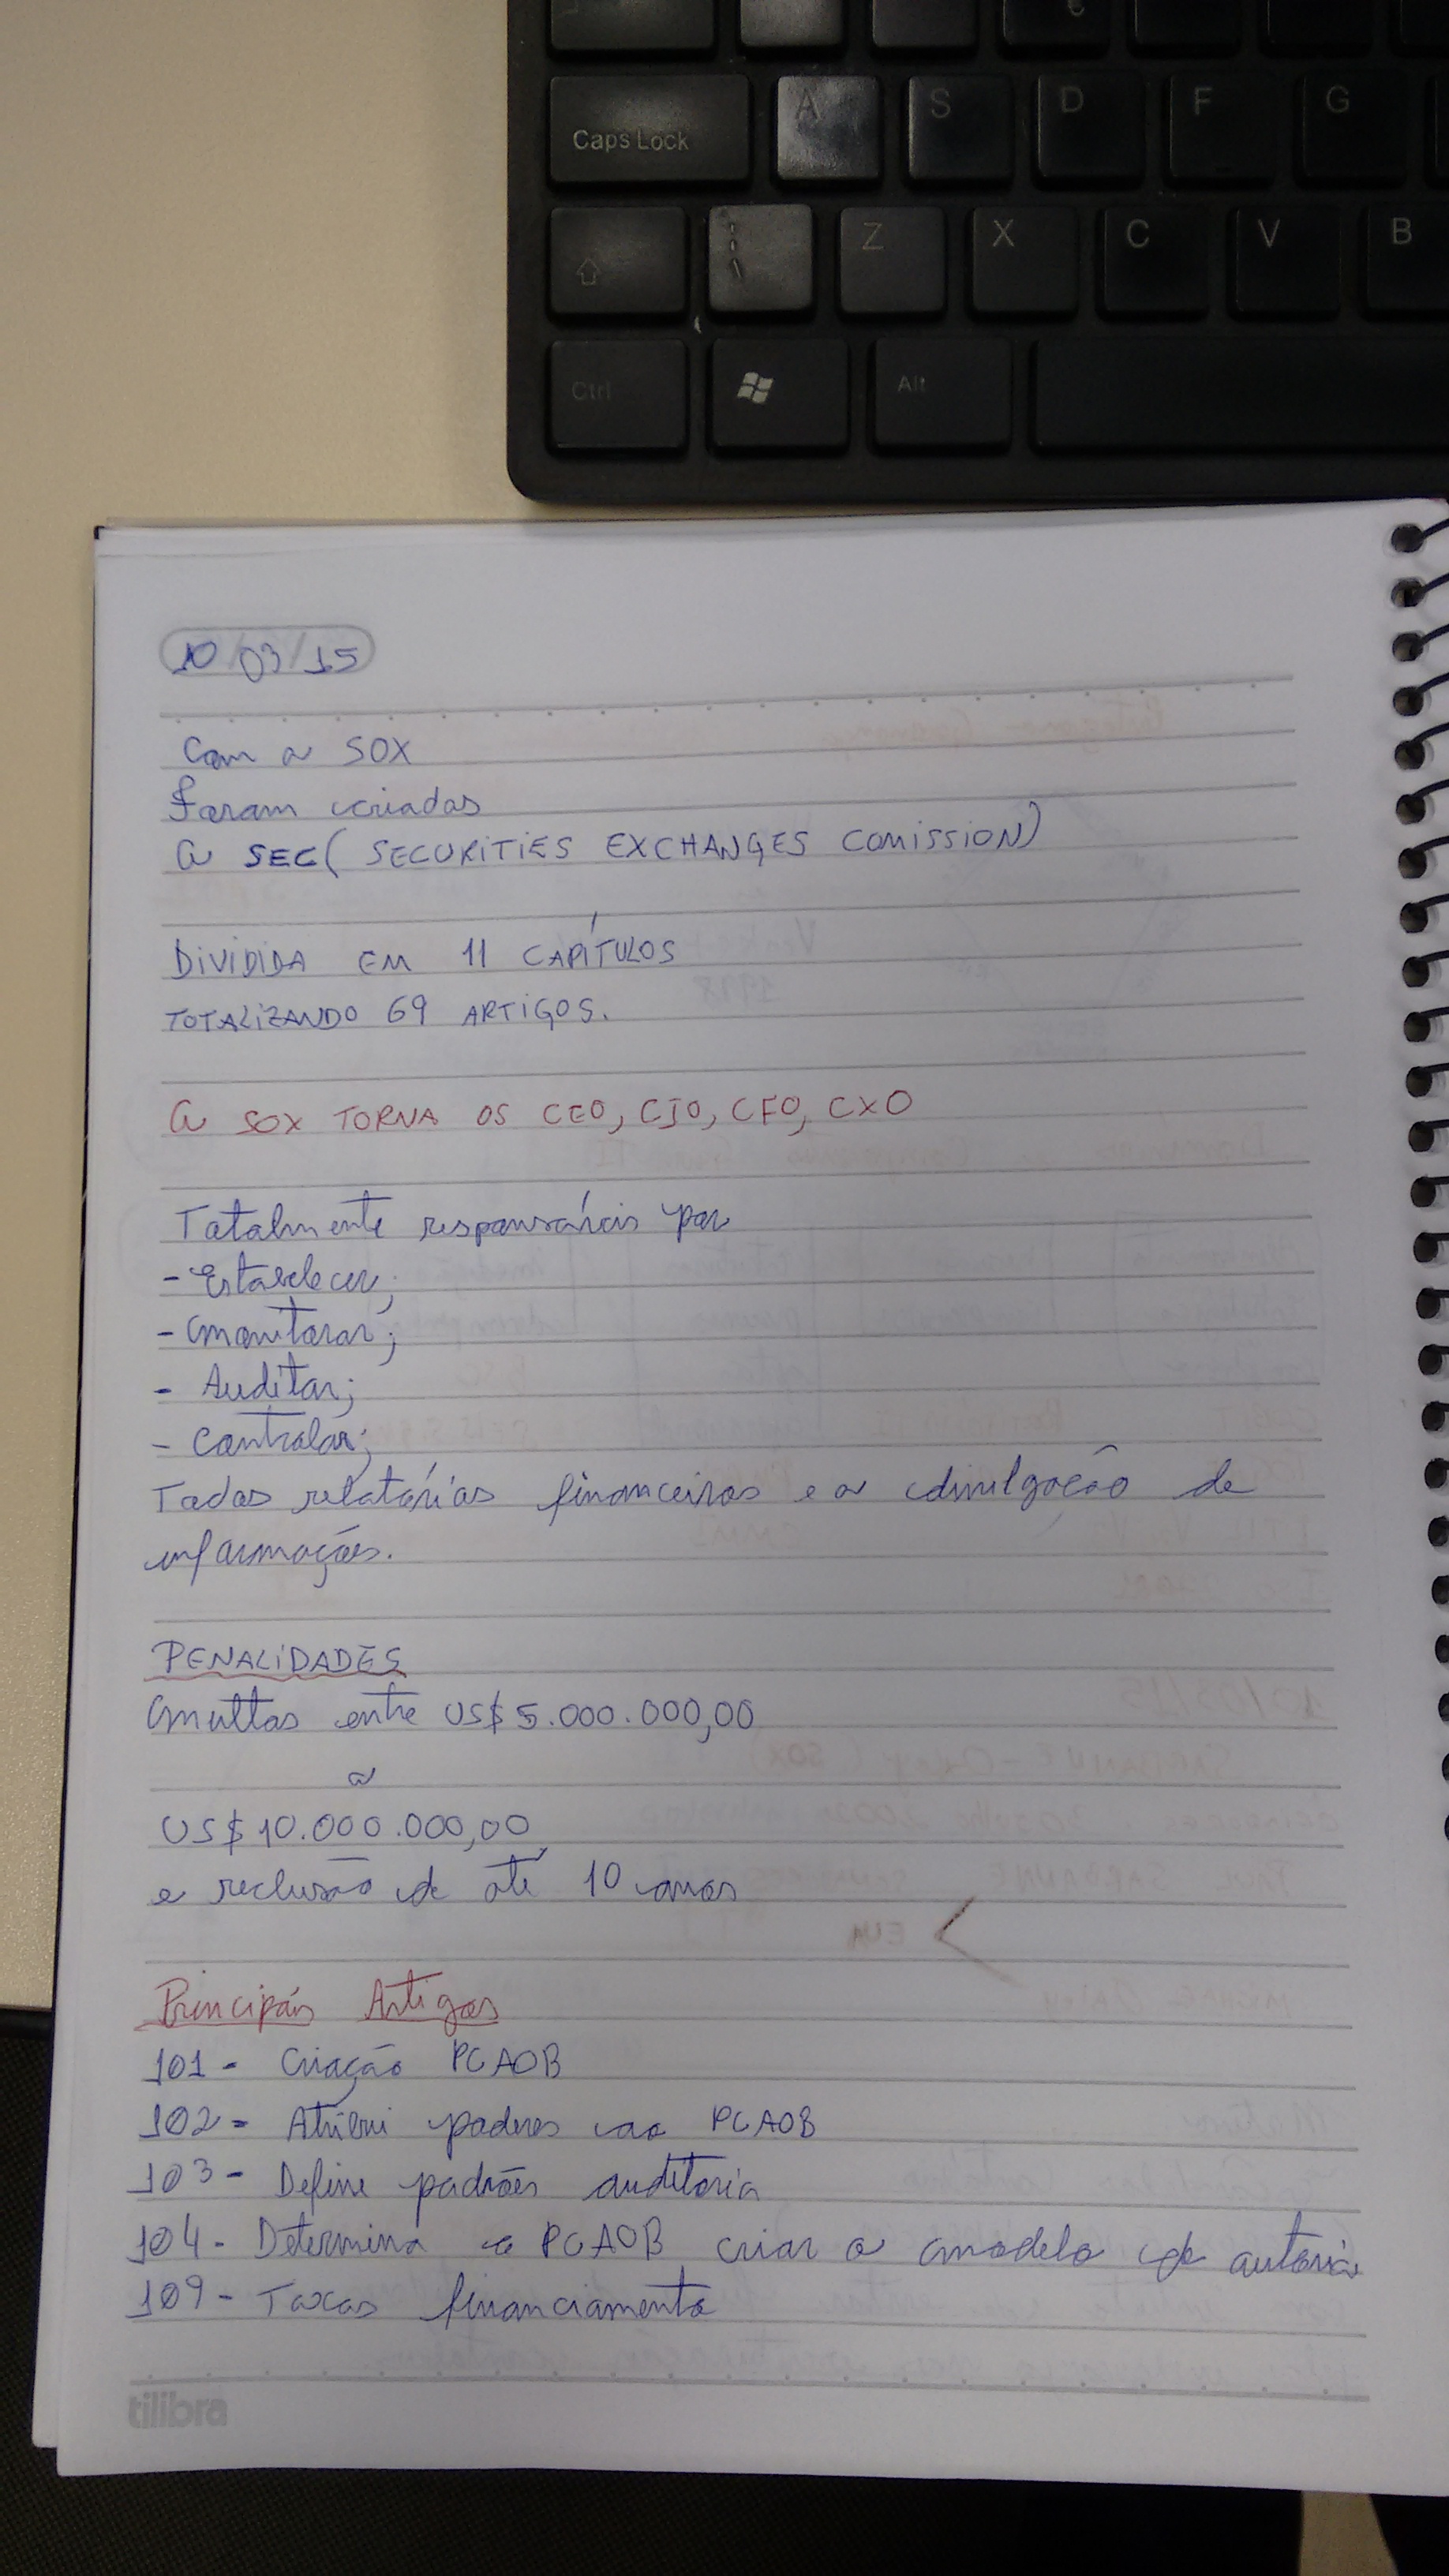 Caps Lock
A
S
D
F
G
Z
X
C
V
B
Ctrl
Alt
10/03/15
Com a SOX
Foram criadas
a SEC ( SECURITIES EXCHANGES COMISSION)
DIVIDIDA EM 11 CAPÍTULOS
TOTALIZANDO 69 ARTIGOS.
a SOX TORNA OS CEO, CIO, CFO, CXO
Totalmente responsáveis por
- Estabelecer;
- monitorar;
- Auditar;
- Controlar;
Todos relatórios financeiros e a divulgação de
informações.
PENALIDADES
multas entre US$ 5.000.000,00
a
US$ 10.000.000,00
e reclusão de até 10 anos
Principais Artigos
101 - Criação PCAOB
102 - Atribui poderes ao PCAOB
103 - Define padrões auditoria
104 - Determina a PCAOB criar o modelo de autoria
109 - Taxas financiamento
tilibra